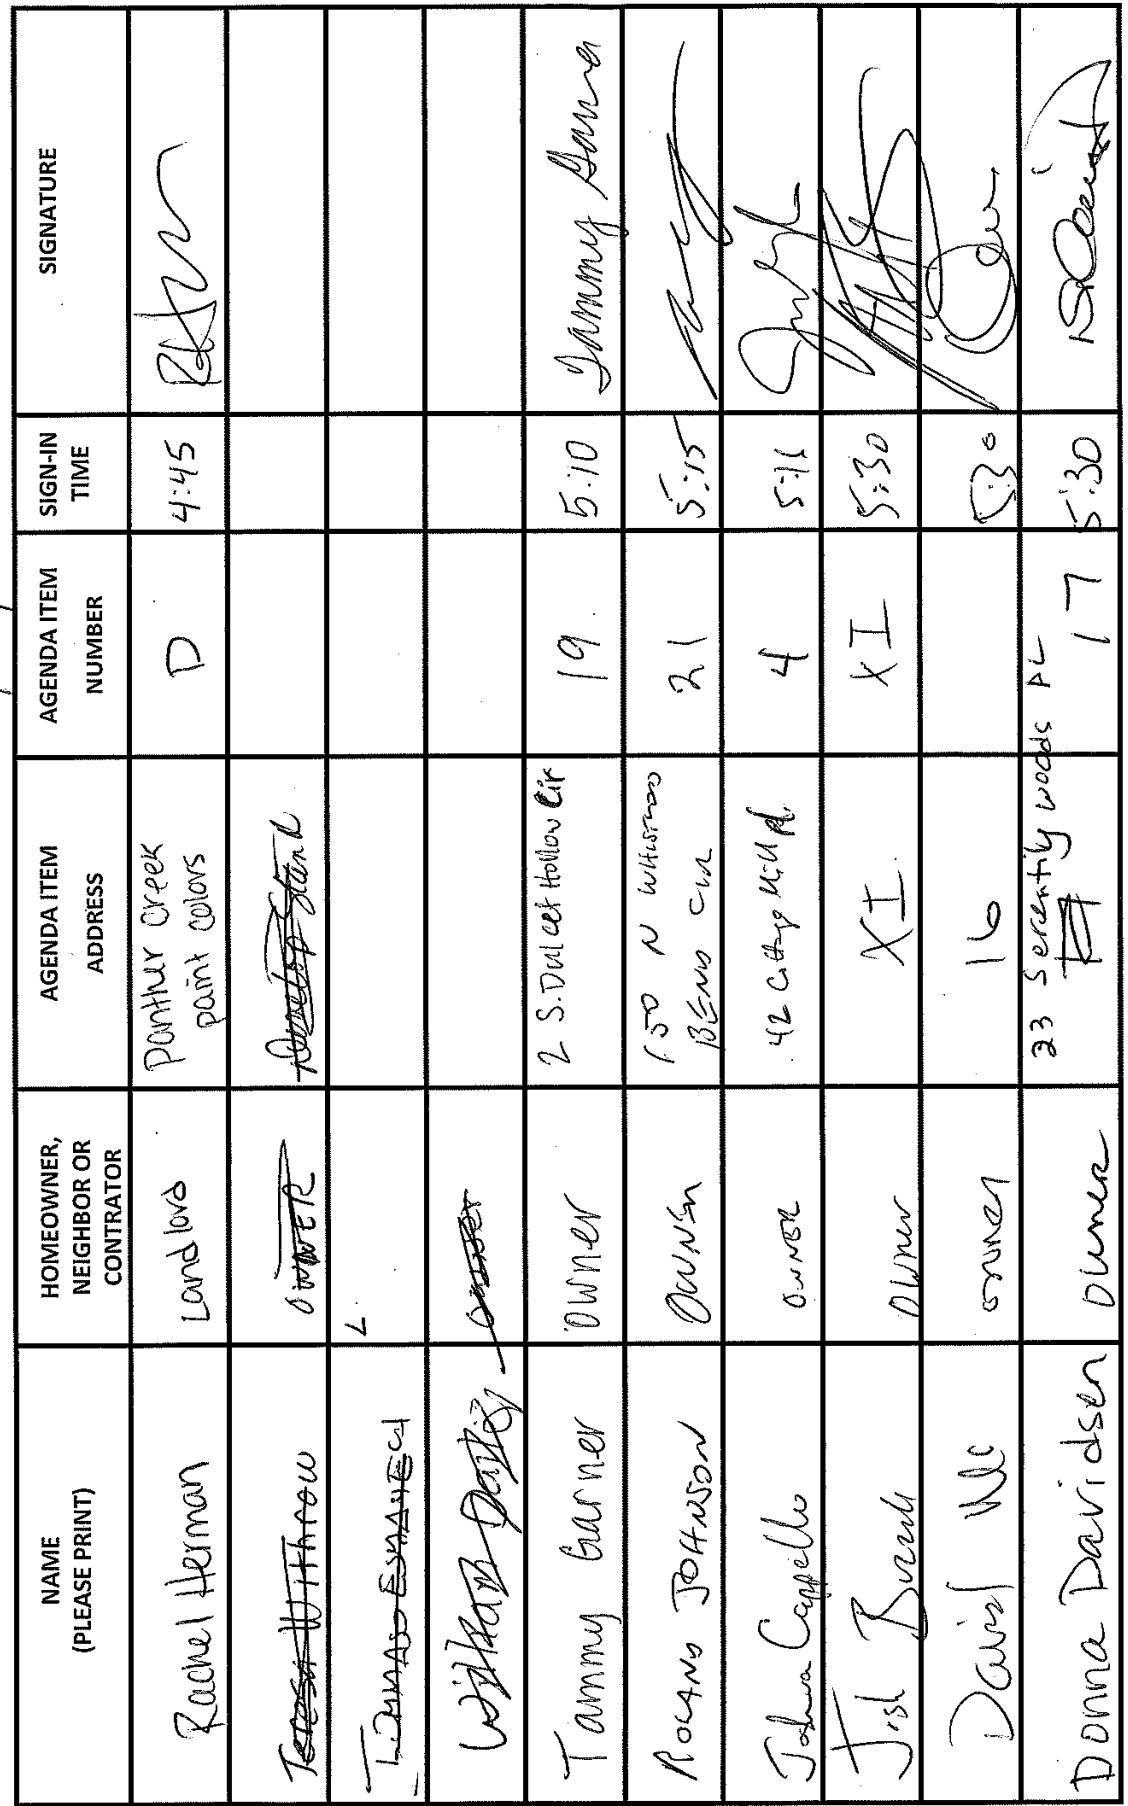 NAME
(PLEASE PRINT)
HOMEOWNER,
NEIGHBOR OR
CONTRATOR
AGENDA ITEM
ADDRESS
AGENDA ITEM
NUMBER
SIGN-IN
TIME
SIGNATURE
Rachel Herman
Landlord
Panthur Creek
paint colors
D
4:45
Teresa Withrow
OWNER
William
owner
Tammy Garner
owner
2 S. Dulcet Hollow Cir
19
5:10
Tammy Garner
ROLAND JOHNSON
OWNER
150 N WHISTLING
BEND CIR
21
5:15
Joshua Cappello
OWNER
42 Cottage Mill Pl.
4
Josh
owner
XI
XI
5:30
David
owner
16
5:30
Donna Davidsen
owner
23 Serentily woods PL
17
5:30